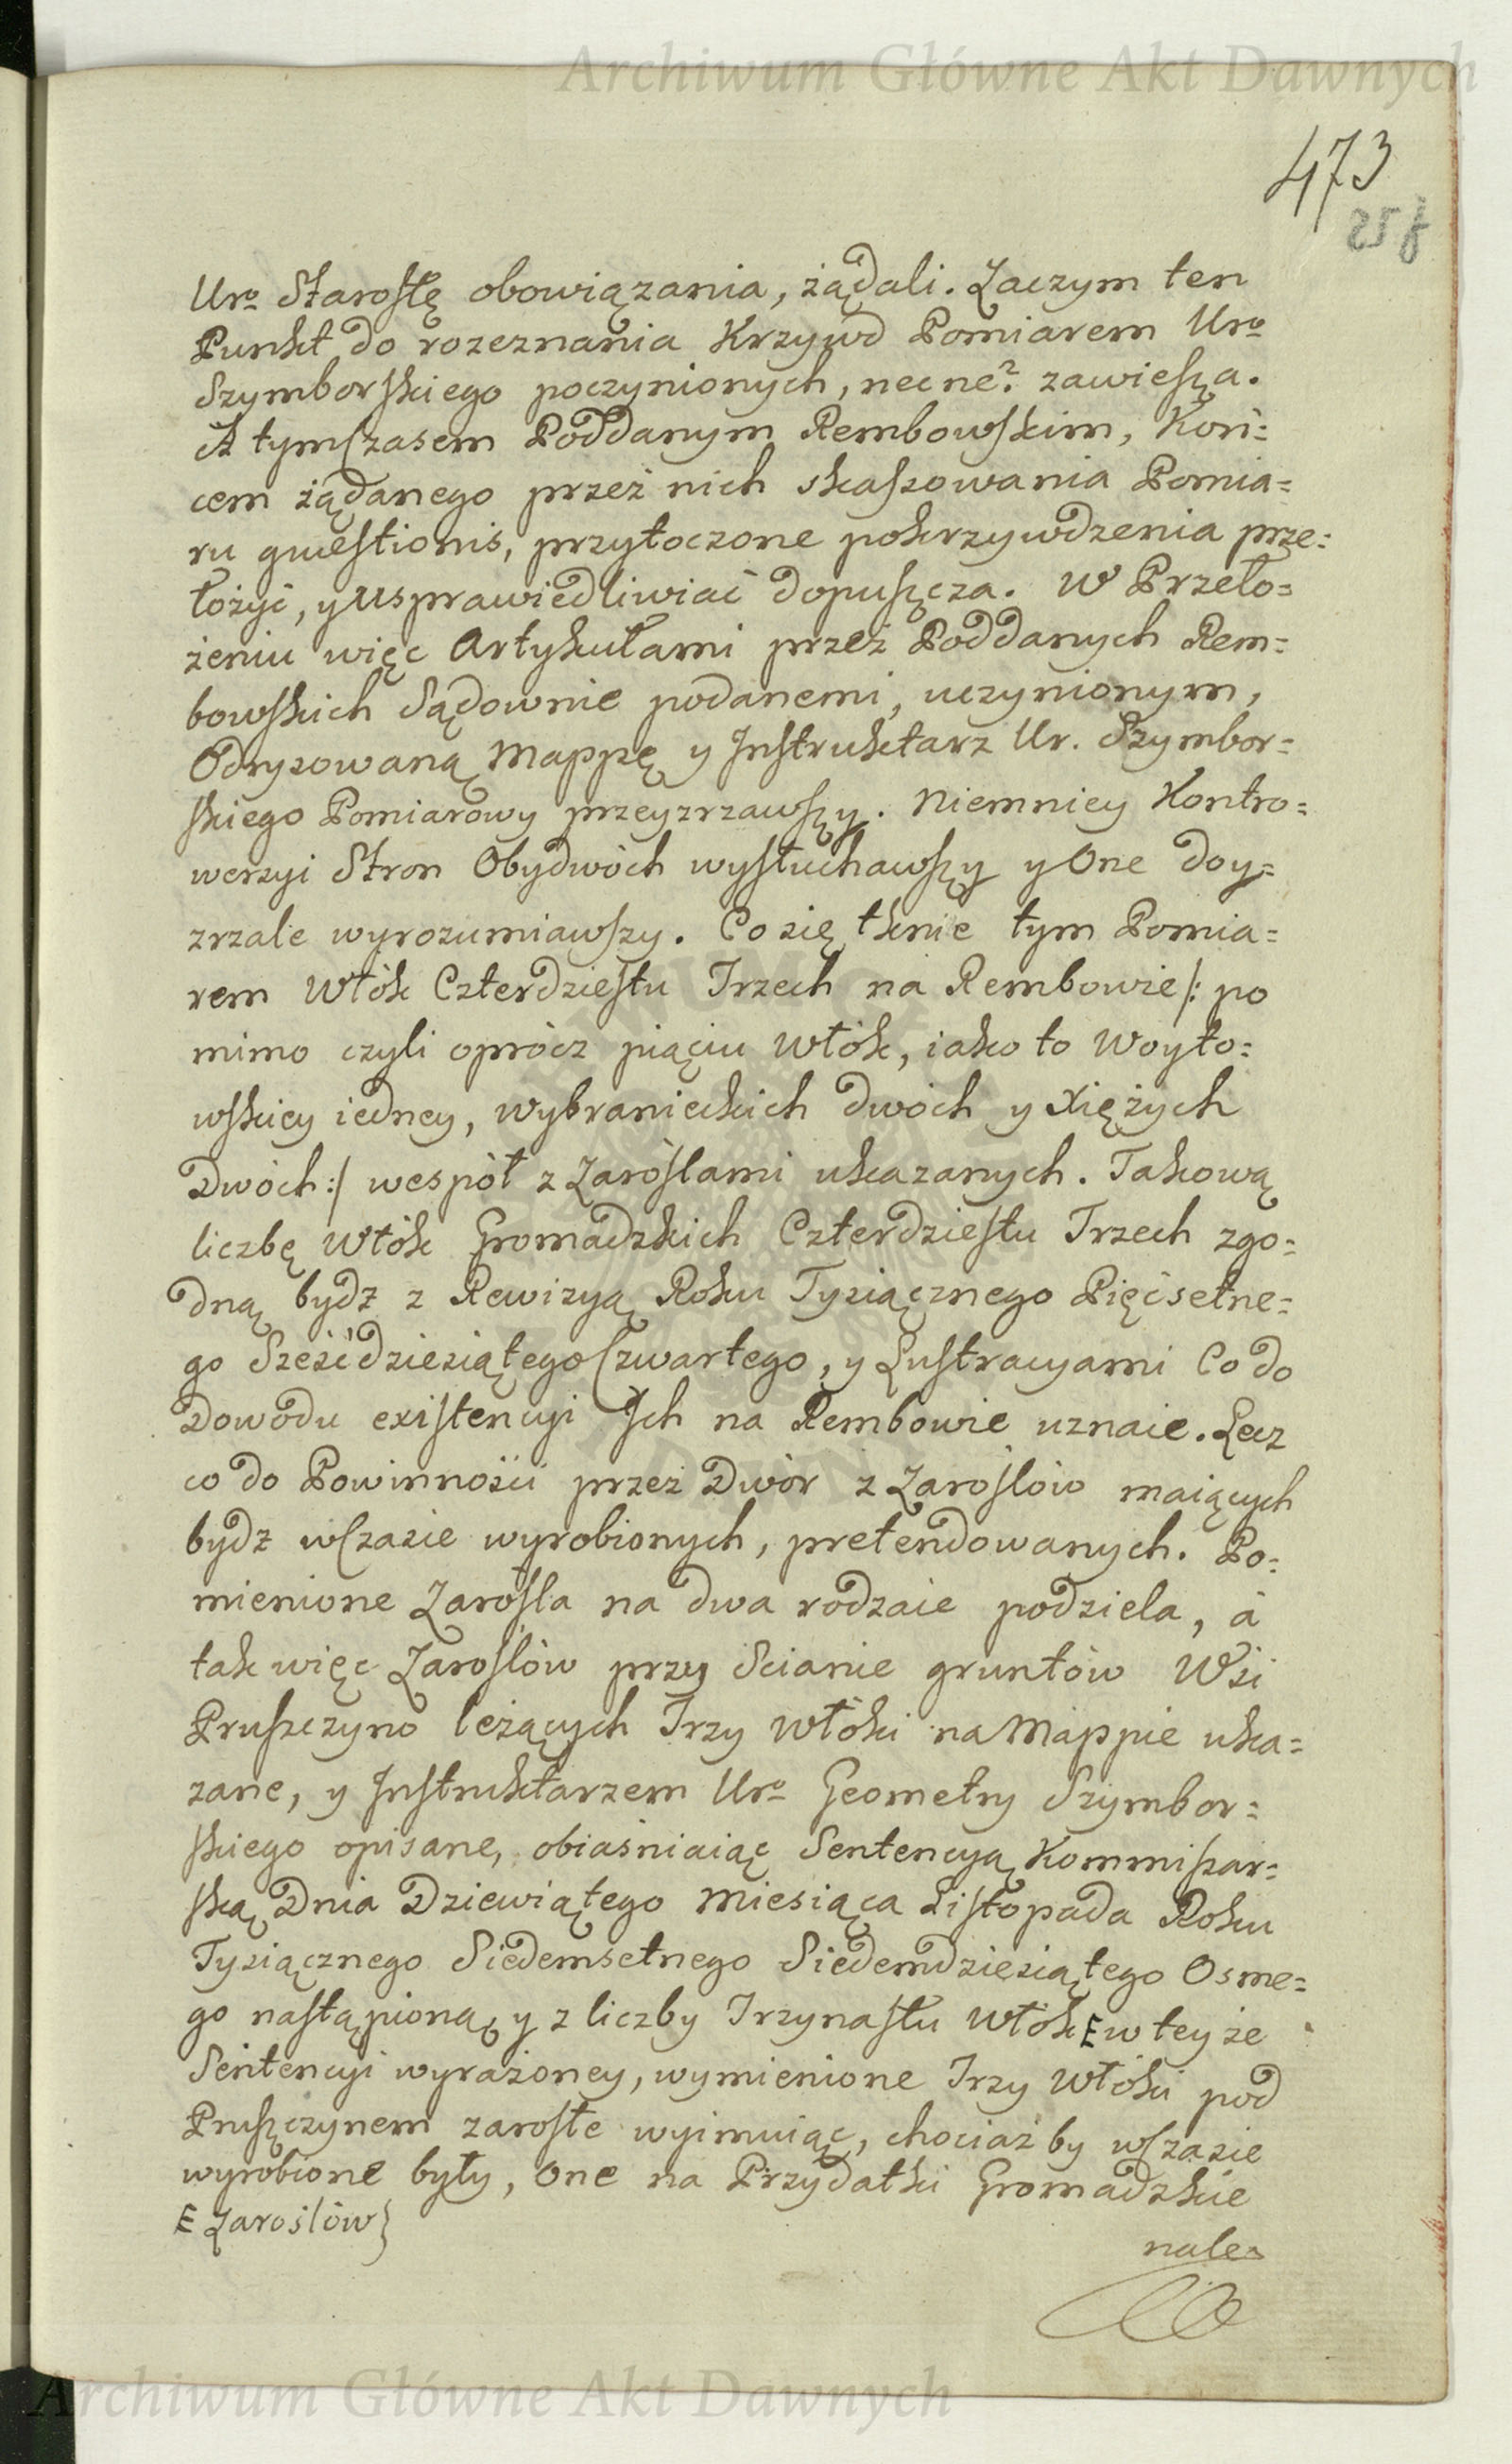 Archiwum Główne Akt Dawnych
473
257
Uro Starostę obowiązania, żądali. Zaczym ten
Punkt do rozeznania Krzywd Pomiarem Uro
Szymborskiego poczynionych, necne? zawiesza.
A tymczasem Poddanym Rembowskim, Koń=
cem żądanego przez nich skassowania Pomia=
ru questionis, przytoczone pokrzywdzenia prze=
łożyć, y usprawiedliwiać dopuszcza. W Przeło=
żeniu więc Artykułami przez Poddanych Rem=
bowskich Sądownie podanemi, uczynionym,
Odrysowaną Mappę y Instruktarz Ur. Szymbor=
skiego Pomiarowy przeyzrzawszy. Niemniey Kontro=
wersyi Stron Obydwóch wysłuchawszy y One doy=
zrzale wyrozumiawszy. Co się tknie tym Pomia=
rem Włók Czterdziestu Trzech na Rembowie /: po
mimo czyli oprócz piąciu Włók, iako to Woyto=
wskiey iedney, wybranieckich dwóch y Xiężych
Dwóch :/ wespół z Zaroślami ukazanych. Takową
liczbę Włók Gromadzkich Czterdziestu Trzech zgo=
dną bydź z Rewizyą Roku Tysiącznego Pięćsetne=
go Sześćdziesiątego Czwartego, y Lustracyami Co do
Dowodu existencyi Ich na Rembowie uznaie. Lecz
co do Powinności przez Dwór z Zaroslów maiących
bydź w czasie wyrobionych, pretendowanych. Po=
mienione Zarosla na dwa rodzaie podziela, á
tak więc Zaroslów przy Scianie gruntów Wsi
Pruszczyno leżących Trzy Włóki na Mappie uka=
zane, y Instruktarzem Uro Geometry Szymbor=
skiego opisane, obiaśniaiąc Sentencyą Kommissar=
ską Dnia Dziewiątego Miesiąca Listopada Roku
Tysiącznego Siedemsetnego Siedemdziesiątego Osme=
go nastąpioną, y z liczby Trzynastu Włók E w tey że
Sentencyi wyrażoney, wymienione Trzy Włóki pod
Pruszczynem zarosłe wyimuiąc, chociaż by w czasie
wyrobione były, One na Przydatki Gromadzkie
E Zaroślów}
nale=
Archiwum Główne Akt Dawnych